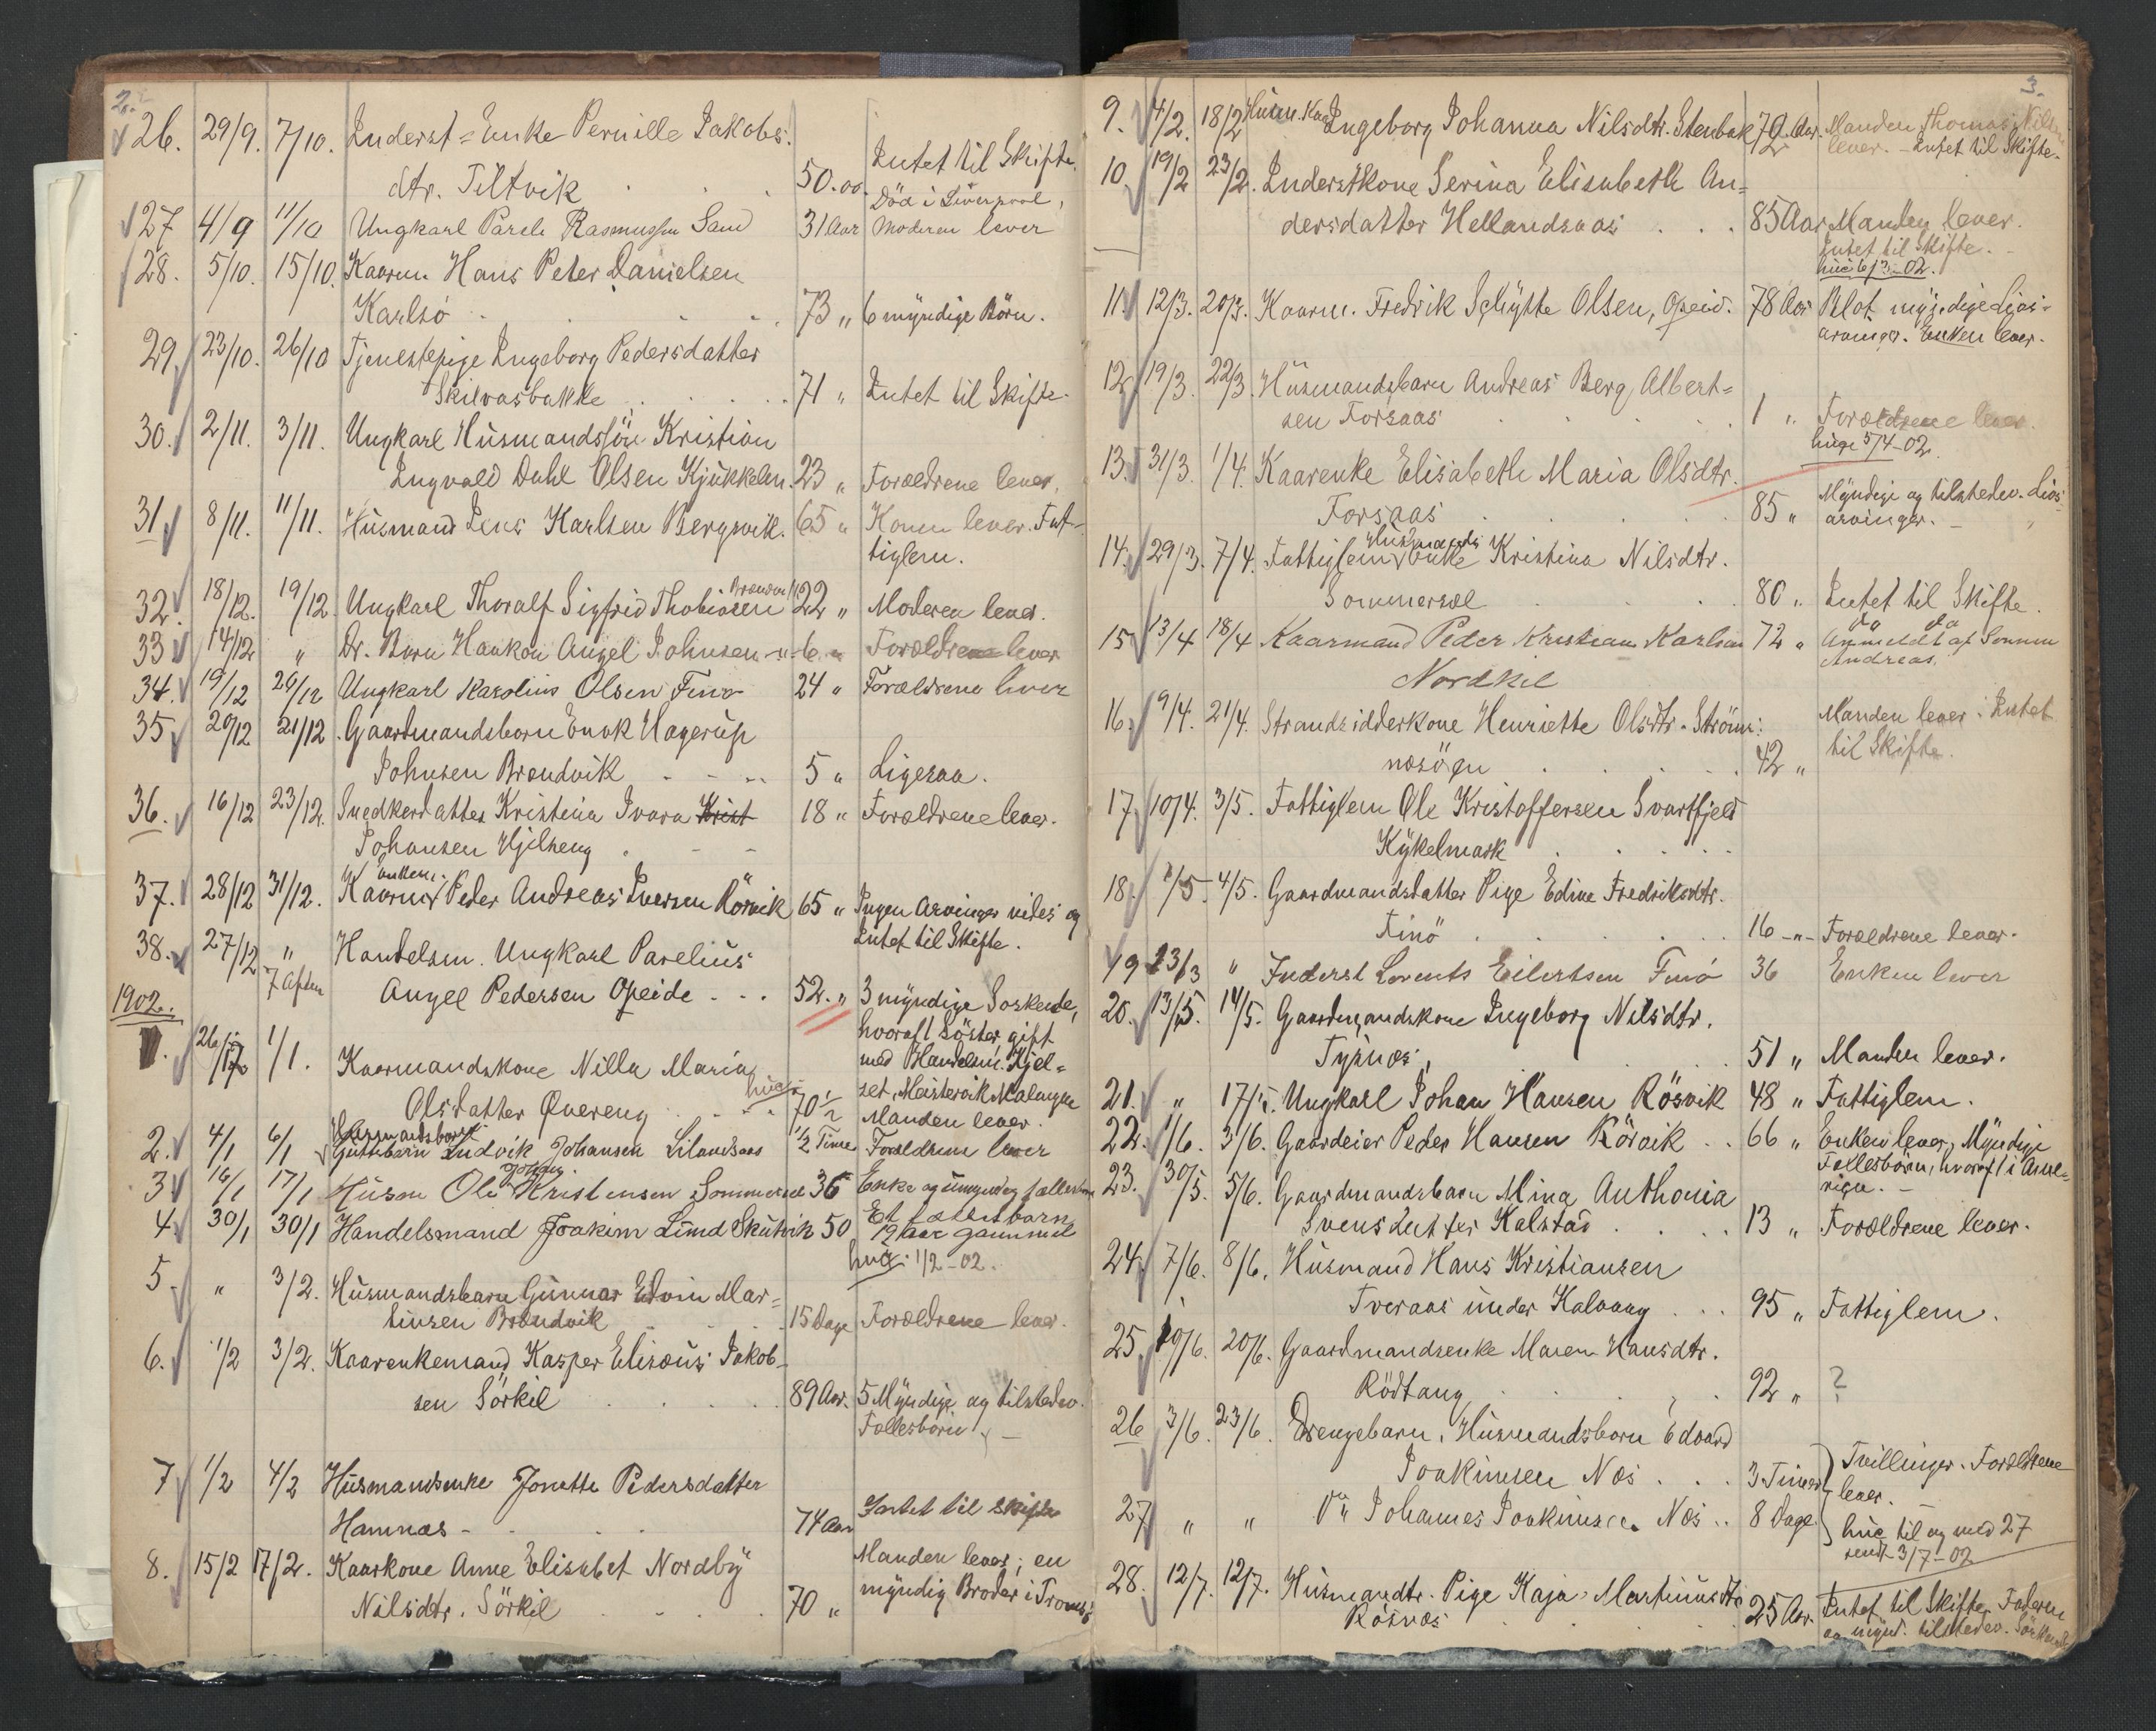 2.
26. 29/9. 7/10. Inderst=Enke Pernille Jakobs.
dtr. Tiltvik . . . 50.00. Intet til Skifte.
27 4/9 11/10 Ungkarl Parels Rasmussen Sand 31 Aar Död i Liverpool, Moderen lever
28. 5/10. 15/10. Kaarm. Hans Peter Danielsen
Karlsö . . . 73 " 6 myndige Börn.
29. 23/10. 26/10 Tjenestepige Ingeborg Pedersdatter
Skilvasbakke . . . . 71 " Intet til Skifte.
30. 2/11. 3/11. Ungkarl Husmandssön Kristian
Ingvald Dahl Olsen Kjükkelm. 23 " Forældrene lever.
31 8/11. 11/11. Husmand Jens Karlsen Bergsvik. 65 " Konen lever. Fat-
tiglem.
32. 18/12. 19/12 Ungkarl Thoralf Sigfrid Thobiasen 22 " Moderen lever.
33 14/12 " Dr. Barn Haakon Angel Johnsen -"- 6 " Forældrene lever
34. 19/12 20/12 Ungkarl Karolius Olsen Finö 24 " Forældrene lever
35 20/12 21/12. Gaardmandsbarn Enok Hagerup
Johnsen Brendvik - - - 5 " Ligesaa.
36. 16/12 23/12. Snedkerdatter Kristina Ivara Krist 18 " Forældrene lever.
Johansen Hjilseng . - -
37. 28/12 31/12. Kaarm. Enkem. Peder Andreas Iversen Rörvik 65 " Ingen Arvinger vides og
Intet til Skifte.
38. 27/12 " Handelsm. Ungkarl Parelius
7 Aften Angel Pedersen Opeide . . . 52. " 3 myndige Söskende,
1902. hvoraf 1 Söster gift
1. 26/12 1/1. Kaarmandskone Nilla Maria med Handelsm. Kjel=
set, Meistervik Malangen
Olsdatter Qvereng . . . 70 1/2 Manden lever.
2. 4/1 6/1 Husmandsbarn Guttebarn Ludvik Johansen Lilandsaas 1/2 Time Forældrene lever
3 16/1 17/1 Husm Ole Johan Kristensen Sommersel 36 Enke og umyndig fællesbarn
4 30/1 30/1 Handelsmand Joakim Lund Skutvik 50 Et fællesbarn
12 Aar gammel
hug. 1/2-02.
5. " 3/2. Husmandsbarn Gunnar Edvin Mar=
tinsen Brændvik 15 Dage Forældrene lever.
6. 1/2 3/2. Kaarenkemand Kasper Elisæus Jakob-
sen Sörkil . . . . 89 Aar. 5 Myndige og tilstedev.
Fællesbörn. -
7 1/2 4/2 Husmandsenke Jonette Pedersdatter
Hamnæs - . . . 74 Aar Intet til skifte
8. 15/2 17/2. Kaarkone Anne Elisabet Nordby Manden lever; en
Nilsdtr. Sörkil . . . . 70 " myndig Broder i Tromsö
3.
9. 4/2. 18/2 Husm. Kone Ingeborg Johanna Nilsdtr. Stenbak 72. Aar. Manden Thomas Nilsen
lever. - Intet til Skifte.
10. 19/2 23/2. Inderstkone Serina Elisabeth An=
dersdatter Hellandsaas . . . 85 Aar Manden lever.
Intet til Skifte. -
6/3-02.
11. 12/3. 20/3. Kaarm. Fredrik Schytte Olsen, Opeid. 78 Aar Blot myndige Livs-
arvinger. Enken lever.
12 19/3. 22/3. Husmandsbarn Andreas Berg Albert=
sen Forsaas . . . . 1 " Forældrene lever.
5/4-02.
13. 31/3. 1/4. Kaarenke Elisabeth Maria Olsdtr.
Forsaas . . . . . 85 " Myndige og tilstedev. Livs
arvinger. -
14. 29/3. 7/4. Fattiglem Husmands Enke Kristina Nilsdtr.
Sommersæl . . . 80 " Intet til Skifte.
do do
15 13/4 18/4 Kaarmand Peder Kristian Karlsen 72 " Anmeldt af Sønnen
Andreas.
Nordkil
16. 9/4. 21/4. Strandsidderkone Henriette Olsdtr. Ström: Manden lever. Intet
næsögn . . . . 42 " til Skifte.
17. 10/4. 3/5. Fattiglem Ole Kristoffersen Svartfjeld
Kykelmark . . . . .
18. 1/5 4/5. Gaardmandsdatter Pige Edine Fredriksdtr.
Finö . . . . . . 16 -"- Forældrene lever.
19 23/3 " Inderst Lorents Eilertsen Finö 36 Enken lever
20. 13/5. 14/5. Gaardmandskone Ingeborg Nilsdtr.
Tysnæs, . . . 51 " Manden lever.
21. " 17/5. Ungkarl Johan Hansen Rösvik 48 " Fattiglem.
22. 1/6. 3/6. Gaardeier Peder Hansen Rörvik . . 66 " Enken lever, Myndige
Fællesbörn, hvoraf 1 i Ame-
rika. -
23. 30/5. 5/6. Gaardmandsbarn Mina Anthonia
Svensdatter Kalstad . . . . 13 " Forældrene lever.
24. 7/6. 8/6. Husmand Hans Kristiansen
Tveraas under Kalvaag . . . 95 " Fattiglem.
25. 19/6. 20/6. Gaardmandsenke Maren Hansdtr.
Rödtang . . . . . 92 " ?
26 3/6. 23/6. Drengebarn, Husmandsbarn Edvard
Joakimsen Næs . . . 3 Timer Tvillinger. Forældrene
lever. -
27 " " do " Johannes Joakimsen Næs . . 8 Dage. til og med 27
sendt 3/7-02
28. 12/7. 12/7. Husmandtr. Pige Kaja Martinusdtr
Rösnæs . . . . . 25 Aar. Intet til Skifte. Faderen
og mynd. tilstedev. Söskende